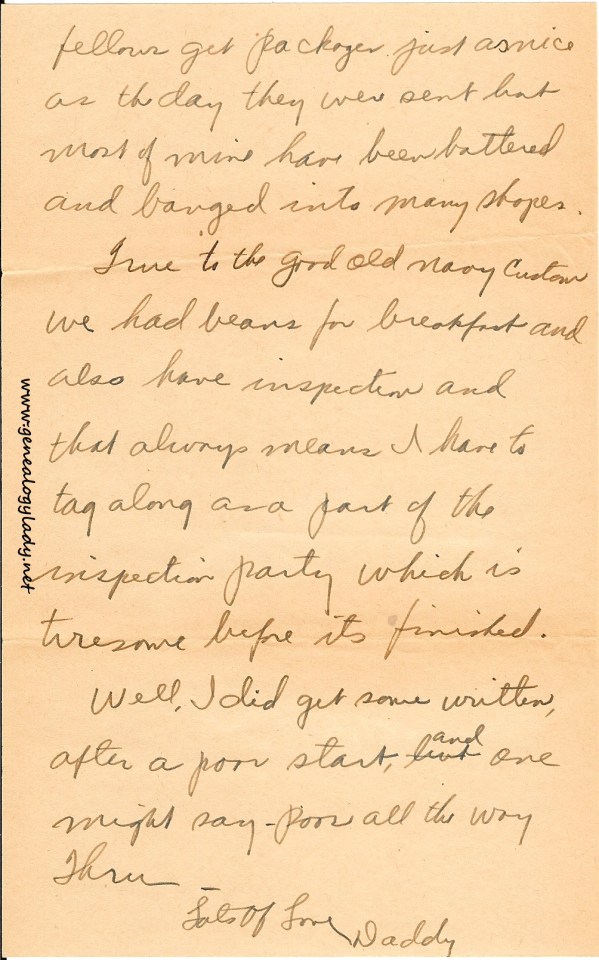 fellows get packages just as nice
as the day they were sent but
most of mine have been battered
and banged into many shapes.
True to the good old navy custom
we had beans for breakfast and
also have inspection and
that always means I have to
tag along as a part of the
inspection party which is
tiresome before its finished.
Well, I did get some written,
after a poor start, but and one
might say - poor all the way
Thru —
Lots of Love
Daddy
www.genealogylady.net